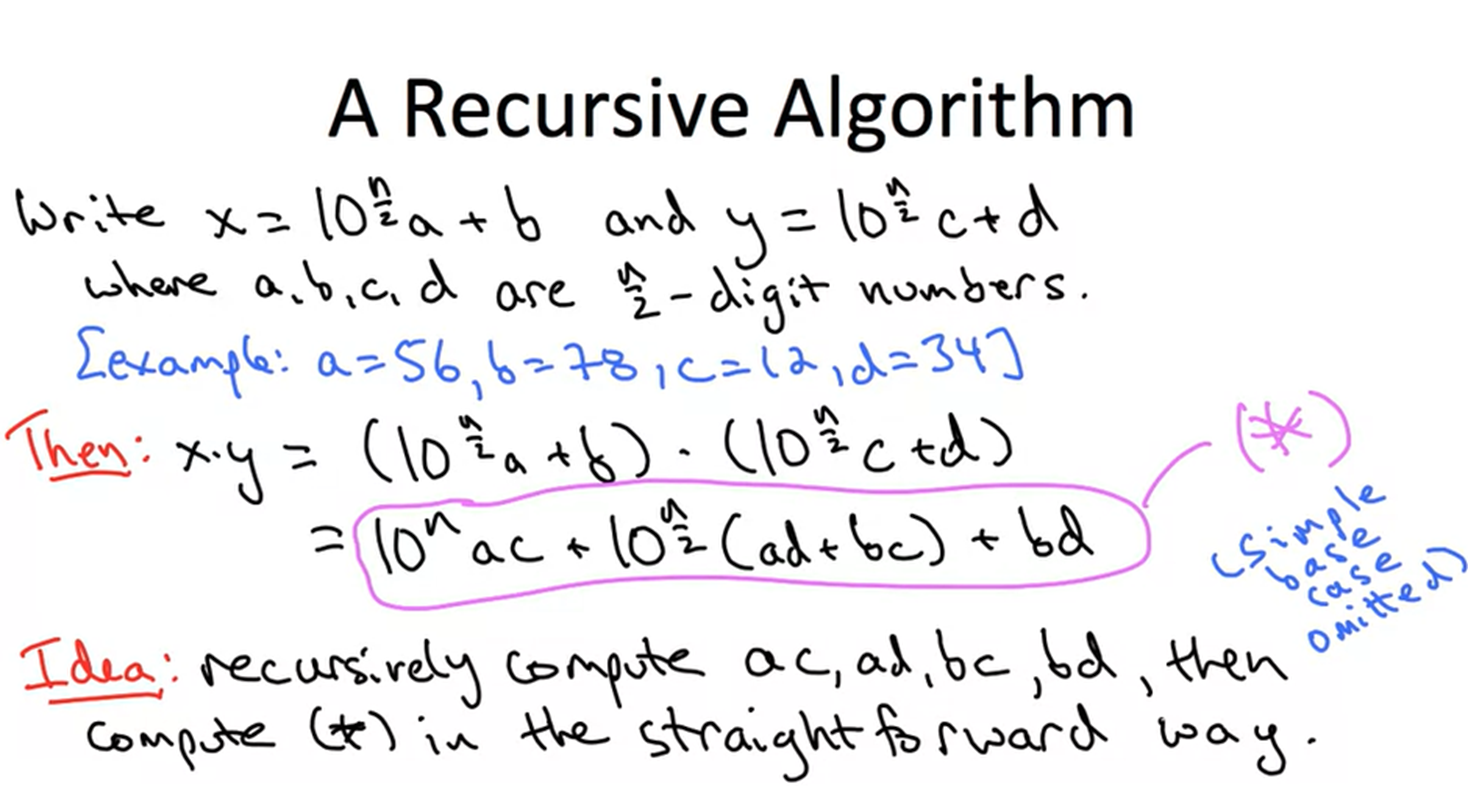 A Recursive Algorithm
Write x = 10^(n/2) a + b and y = 10^(n/2) c + d
where a, b, c, d are n/2 - digit numbers.
[example: a=56, b=78, c=12, d=34]
Then: x·y = (10^(n/2) a + b) · (10^(n/2) c + d)
(*)
= 10^n ac + 10^(n/2) (ad + bc) + bd
(simple
base
case
omitted)
Idea: recursively compute ac, ad, bc, bd, then
compute (*) in the straightforward way.